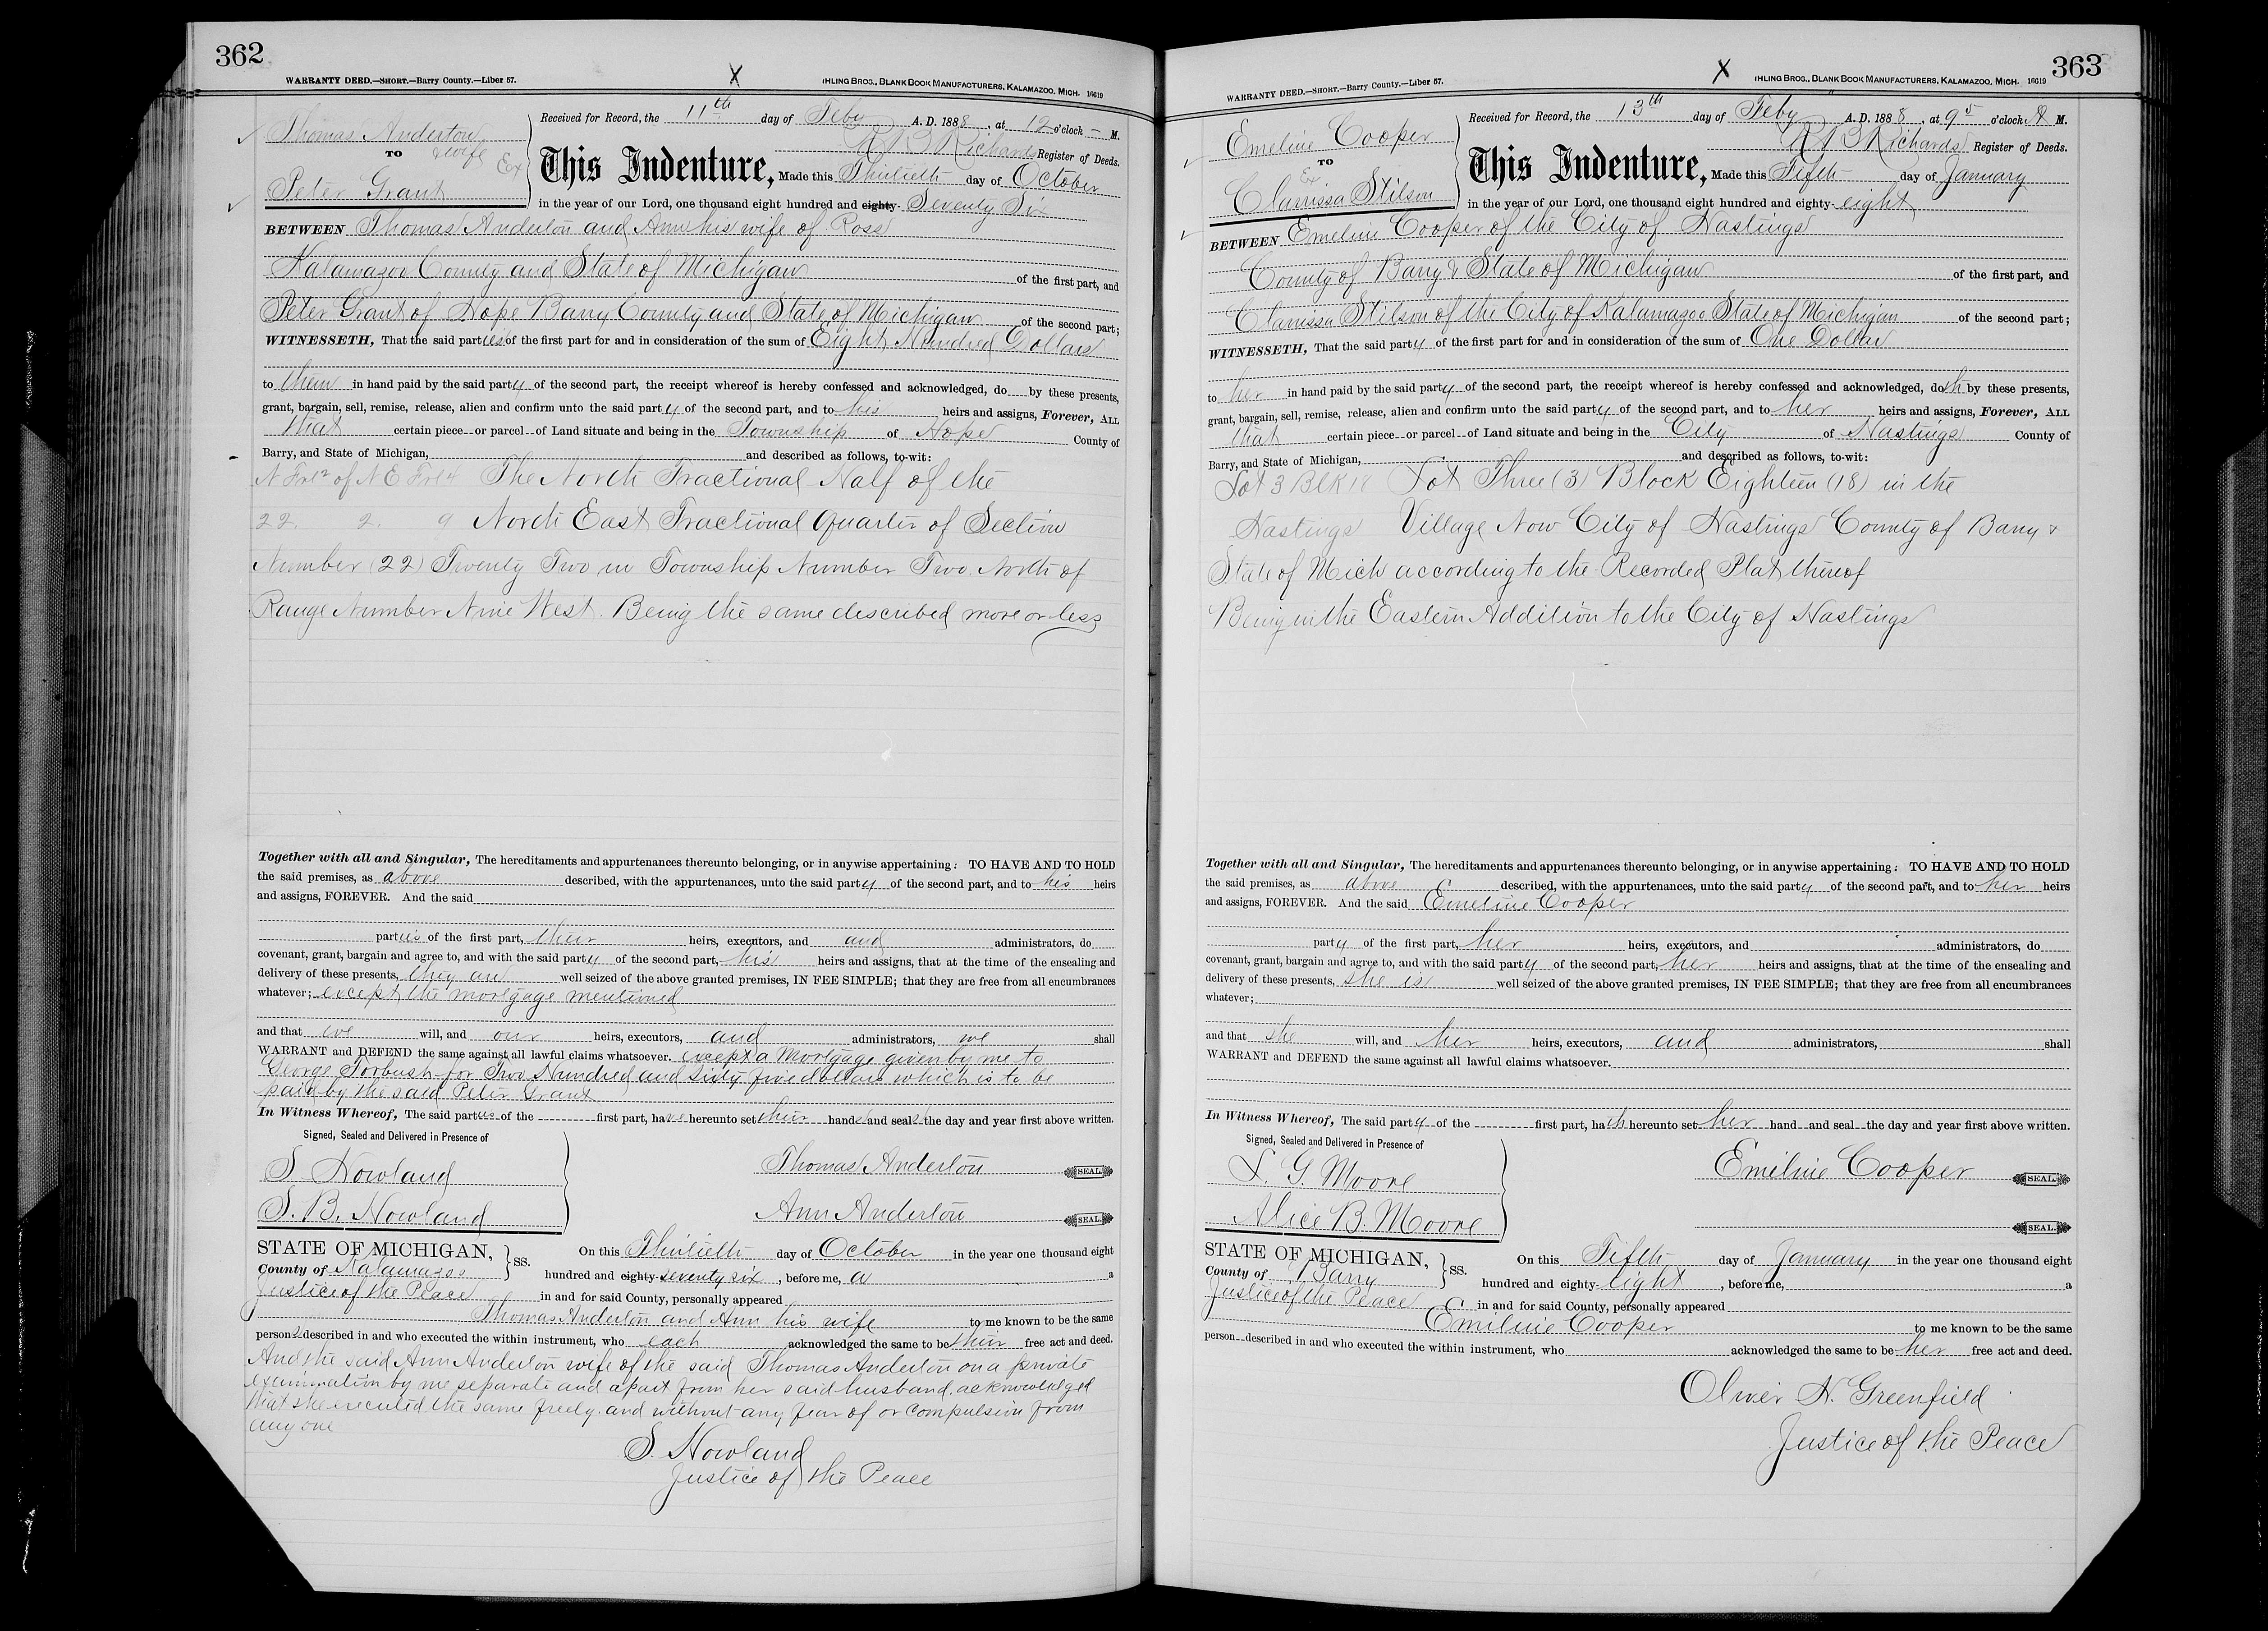 362
WARRANTY DEED.—SHORT.—Barry County.—Liber 57.
X
IHLING BROS., BLANK BOOK MANUFACTURERS, KALAMAZOO, MICH. 16619
Thomas Anderton
& wife
TO
Ex
Peter Grant
Received for Record, the 11th day of Feby A. D. 1888, at 12 o'clock — M.
R B Richards Register of Deeds.
This Indenture, Made this Thirtieth day of October
in the year of our Lord, one thousand eight hundred and eighty- Seventy Six
BETWEEN Thomas Anderton and Ann his wife of Ross
Kalamazoo County and State of Michigan of the first part, and
Peter Grant of Hope Barry County and State of Michigan of the second part;
WITNESSETH, That the said parties of the first part for and in consideration of the sum of Eight Hundred Dollars
to them in hand paid by the said party of the second part, the receipt whereof is hereby confessed and acknowledged, do by these presents,
grant, bargain, sell, remise, release, alien and confirm unto the said party of the second part, and to his heirs and assigns, Forever, ALL
that certain piece or parcel of Land situate and being in the Township of Hope County of
Barry, and State of Michigan, and described as follows, to-wit:
N Frl 2 of N E Frl 4 The North Fractional Half of the
22. 2. 9 North East Fractional Quarter of Section
Number (22) Twenty Two in Township Number Two North of
Range Number Nine West. Being the same described more or less
Together with all and Singular, The hereditaments and appurtenances thereunto belonging, or in anywise appertaining: TO HAVE AND TO HOLD
the said premises, as above described, with the appurtenances, unto the said party of the second part, and to his heirs
and assigns, FOREVER. And the said
parties of the first part, their heirs, executors, and and administrators, do
covenant, grant, bargain and agree to, and with the said party of the second part, his heirs and assigns, that at the time of the ensealing and
delivery of these presents, they are well seized of the above granted premises, IN FEE SIMPLE; that they are free from all encumbrances
whatever; except the mortgage mentioned
and that we will, and our heirs, executors, and administrators, we shall
WARRANT and DEFEND the same against all lawful claims whatsoever. except a Mortgage given by me to
George Torbush for Two Hundred and Sixty five dollars which is to be
paid by the said Peter Grant
In Witness Whereof, The said parties of the first part, have hereunto set their hands and seals the day and year first above written.
Signed, Sealed and Delivered in Presence of
S. Nowland
S. B. Nowland
Thomas Anderton SEAL.
Ann Anderton SEAL.
STATE OF MICHIGAN, } SS.
County of Kalamazoo
On this Thirtieth day of October in the year one thousand eight
hundred and eighty seventy six, before me, a a
Justice of the Peace in and for said County, personally appeared
Thomas Anderton and Ann his wife to me known to be the same
persons described in and who executed the within instrument, who each acknowledged the same to be their free act and deed.
And the said Ann Anderton wife of the said Thomas Anderton on a private
examination by me separate and apart from her said husband, acknowledged
that she executed the same freely and without any fear of or compulsion from
any one
S. Nowland
Justice of the Peace
363
WARRANTY DEED.—SHORT.—Barry County.—Liber 57.
X
IHLING BROS., BLANK BOOK MANUFACTURERS, KALAMAZOO, MICH. 16619
Emeline Cooper
TO
Ex
Clarrissa Stilson
Received for Record, the 13th day of Feby A. D. 1888, at 9 5 o'clock A M.
R B Richards Register of Deeds.
This Indenture, Made this Fifth day of January
in the year of our Lord, one thousand eight hundred and eighty-eight
BETWEEN Emeline Cooper of the City of Hastings
County of Barry & State of Michigan of the first part, and
Clarrissa Stilson of the City of Kalamazoo State of Michigan of the second part;
WITNESSETH, That the said party of the first part for and in consideration of the sum of One Dollar
to her in hand paid by the said party of the second part, the receipt whereof is hereby confessed and acknowledged, doth by these presents,
grant, bargain, sell, remise, release, alien and confirm unto the said party of the second part, and to her heirs and assigns, Forever, ALL
that certain piece or parcel of Land situate and being in the City of Hastings County of
Barry, and State of Michigan, and described as follows, to-wit:
Lot 3 Blk 18 Lot Three (3) Block Eighteen (18) in the
Hastings Village Now City of Hastings County of Barry &
State of Mich according to the Recorded Plat thereof
Being in the Eastern Addition to the City of Hastings
Together with all and Singular, The hereditaments and appurtenances thereunto belonging, or in anywise appertaining: TO HAVE AND TO HOLD
the said premises, as above described, with the appurtenances, unto the said party of the second part, and to her heirs
and assigns, FOREVER. And the said Emeline Cooper
party of the first part, her heirs, executors, and administrators, do
covenant, grant, bargain and agree to, and with the said party of the second part, her heirs and assigns, that at the time of the ensealing and
delivery of these presents, she is well seized of the above granted premises, IN FEE SIMPLE; that they are free from all encumbrances
whatever;
and that she will, and her heirs, executors, and administrators, shall
WARRANT and DEFEND the same against all lawful claims whatsoever.
In Witness Whereof, The said party of the first part, hath hereunto set her hand and seal the day and year first above written.
Signed, Sealed and Delivered in Presence of
L. G. Moore
Alice B. Moore
Emeline Cooper SEAL.
SEAL.
STATE OF MICHIGAN, } SS.
County of Barry
On this Fifth day of January in the year one thousand eight
hundred and eighty-eight, before me, a
Justice of the Peace in and for said County, personally appeared
Emeline Cooper to me known to be the same
person described in and who executed the within instrument, who acknowledged the same to be her free act and deed.
Oliver H. Greenfield
Justice of the Peace